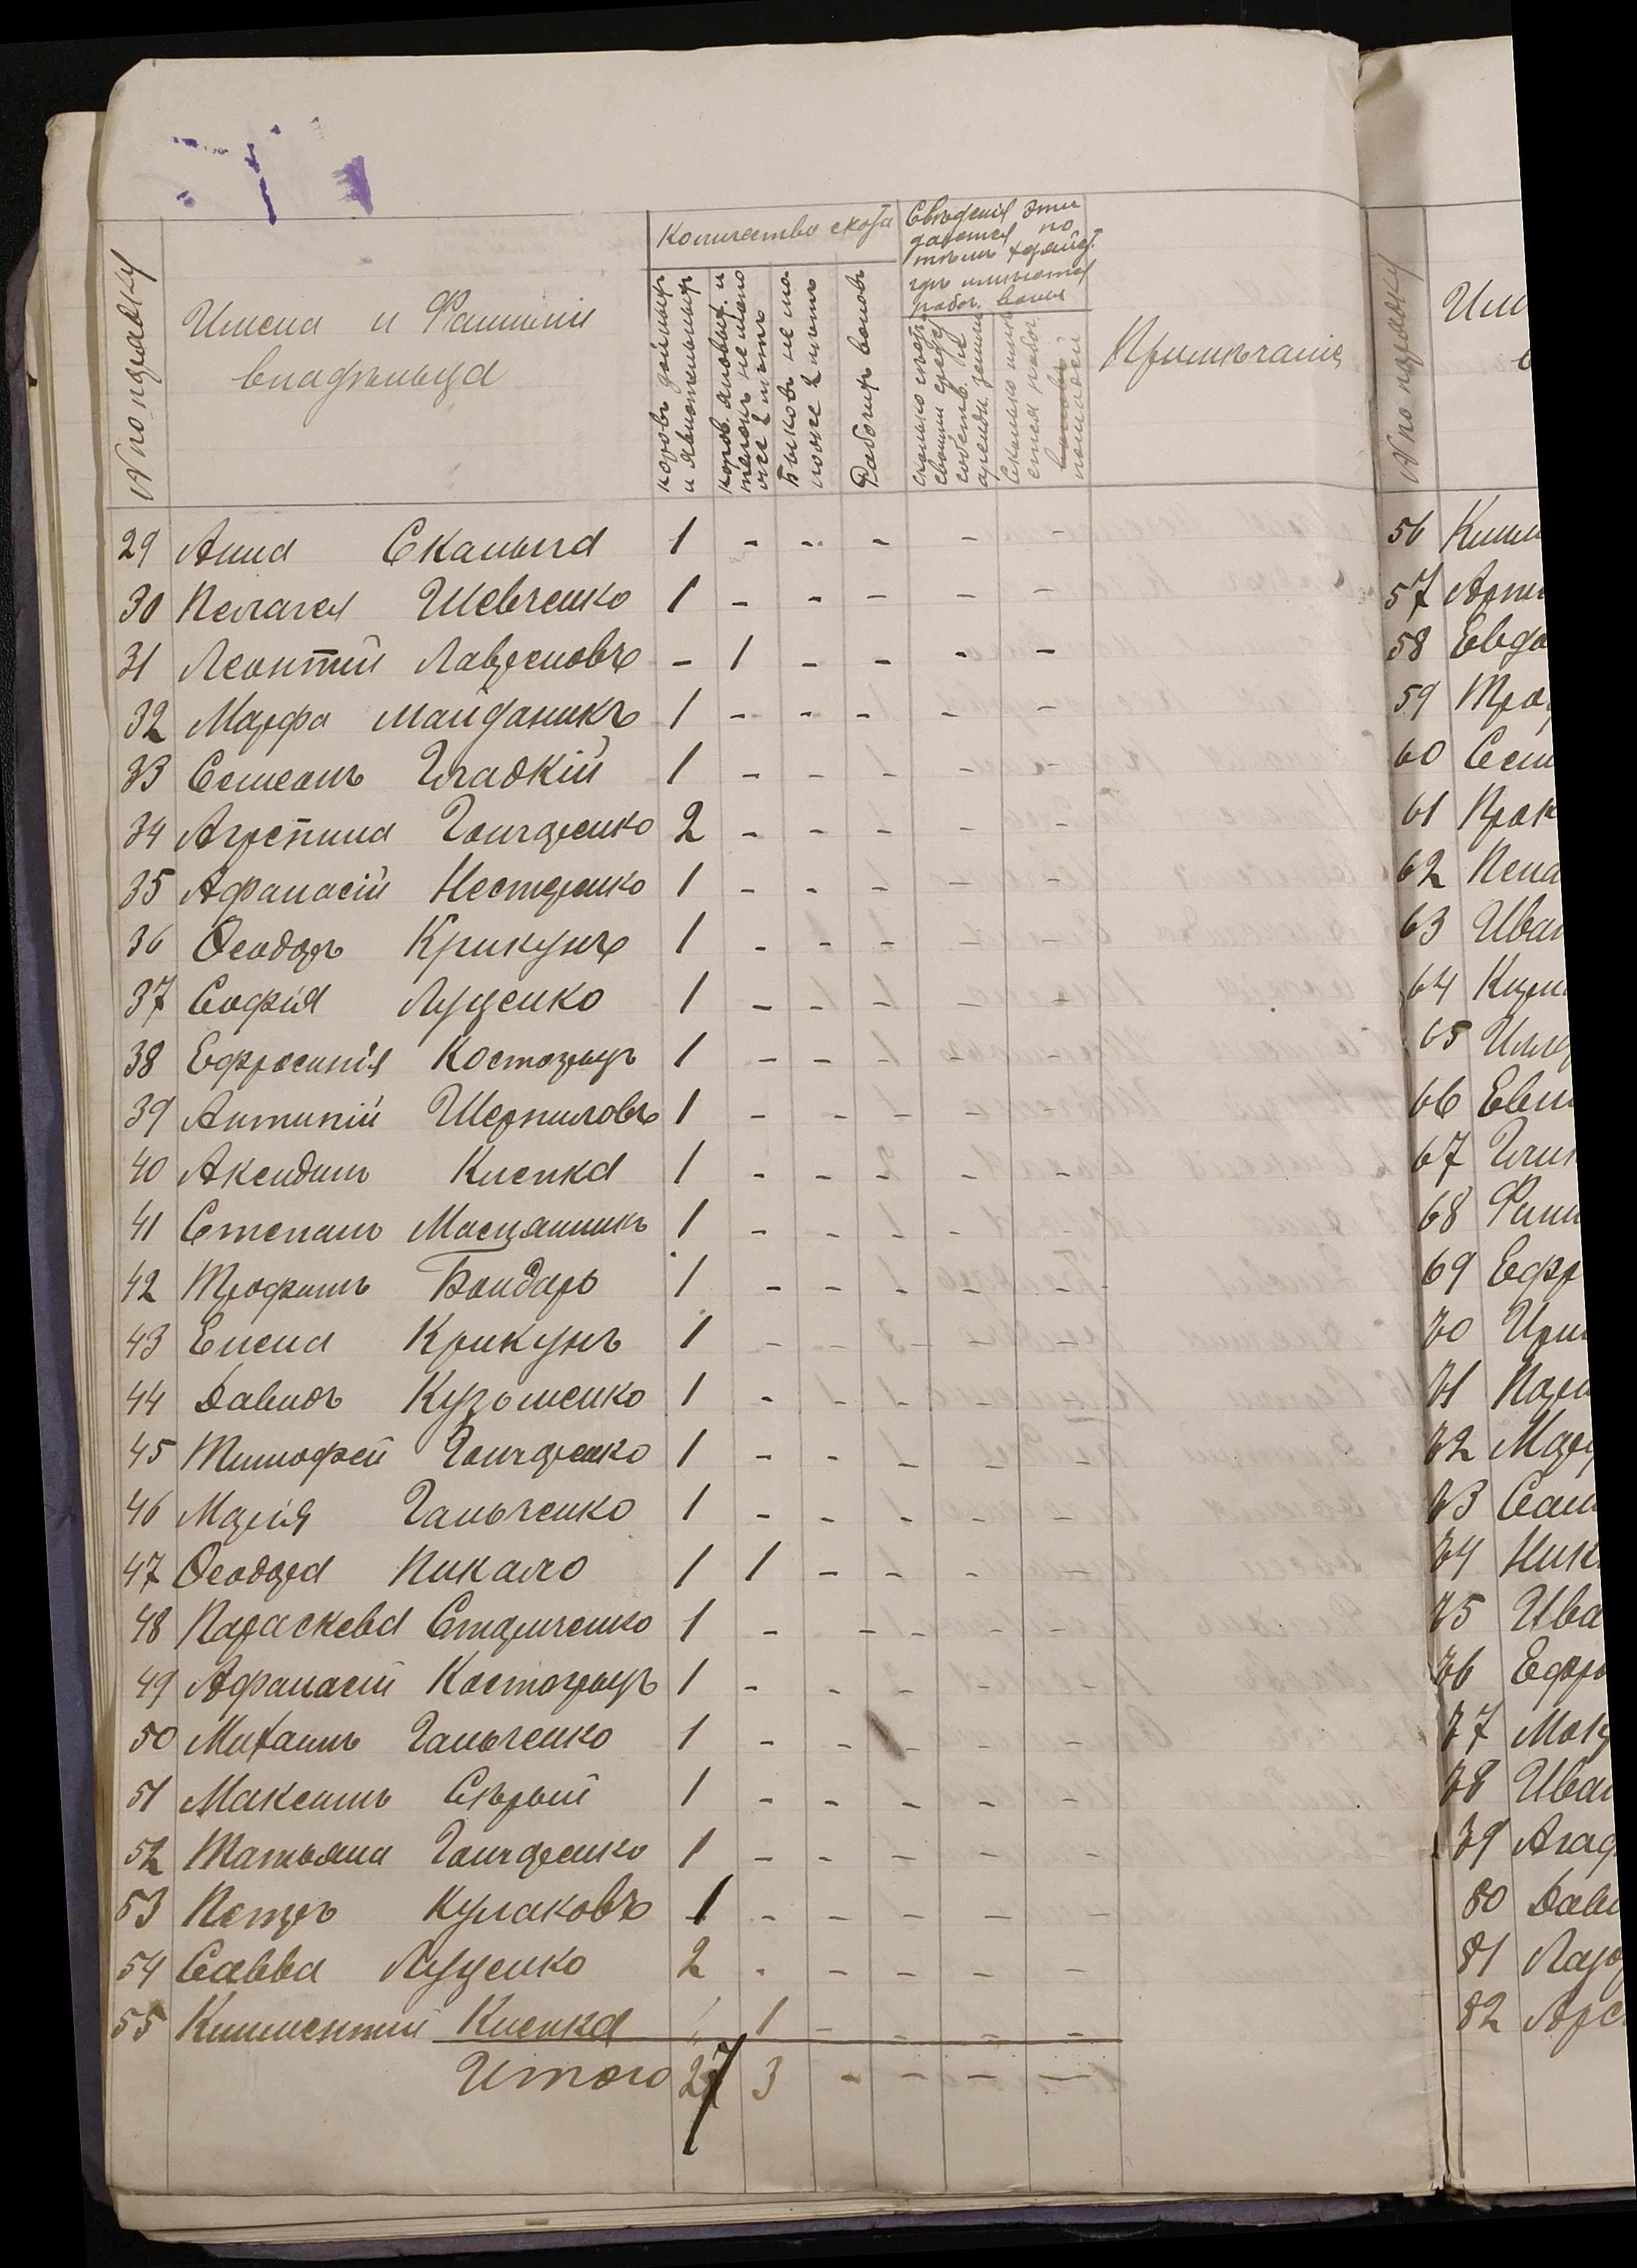 № по порядку
Имена и Фамилія
владѣльца
Количество скота
коровъ дойныхъ
и
коров. яловых. и
телокъ не моло
же 2 лѣтъ
Быковъ не мо
ложе 2 лѣтъ
Рабочихъ воловъ
Свѣденія эти
даются по
тѣмъ хозяйст.
гдѣ имѣются
рабоч. волы
сколько
своими
собств. и
арендн. земли
Сколько
рабоч.
воловъ
Примѣчаніе
29 Анна Скалыга 1 - - - - -
30 Пелагея Шевченко 1 - - - - -
31 Леонтій Лавреновъ - 1 - - - -
32 Марфа Майданикъ 1 - - - - -
33 Семеонъ Гладкій 1 - - - - -
34 Агрепина Гончаренко 2 - - - - -
35 Афанасій Нестеренко 1 - - - - -
36 Ѳеодоръ Крикунъ 1 - - - - -
37 Софія Луценко 1 - - - - -
38 Ефросинія Костогрызъ 1 - - - - -
39 Антипій Шерпиловъ 1 - - - - -
40 Аксидинъ Клепка 1 - - - - -
41 Степанъ Масцяникъ 1 - - - - -
42 Трофимъ Бондарь 1 - - - - -
43 Елена Крикунъ 1 - - - - -
44 Давидъ Кузьменко 1 - - - - -
45 Тимофей Гончаренко 1 - - - - -
46 Марія Гальченко 1 - - - - -
47 Ѳеодора Пикало 1 1 - - - -
48 Параскева Старченко 1 - - - - -
49 Афанасій Костогрызъ 1 - - - - -
50 Михаилъ Гальченко 1 - - - - -
51 Максимъ Сѣрый 1 - - - - -
52 Татьяна Гончаренко 1 - - - - -
53 Петръ Кулаковъ 1 - - - - -
54 Савва Луценко 2 - - - - -
55 Климентій Клепка 1 - - - -
Итого 27 3 - - - -
№ по порядку
56
57
58 Евдо
59 Тро
60 Сем
61 Прок
62 Пела
63 Иван
64
65
66
67
68
69 Ефр
70 Ири
71
72
73
74 Ник
75 Ива
76 Ефр
77
78 Иван
79 Агаф
80 Дави
81
82 Арс